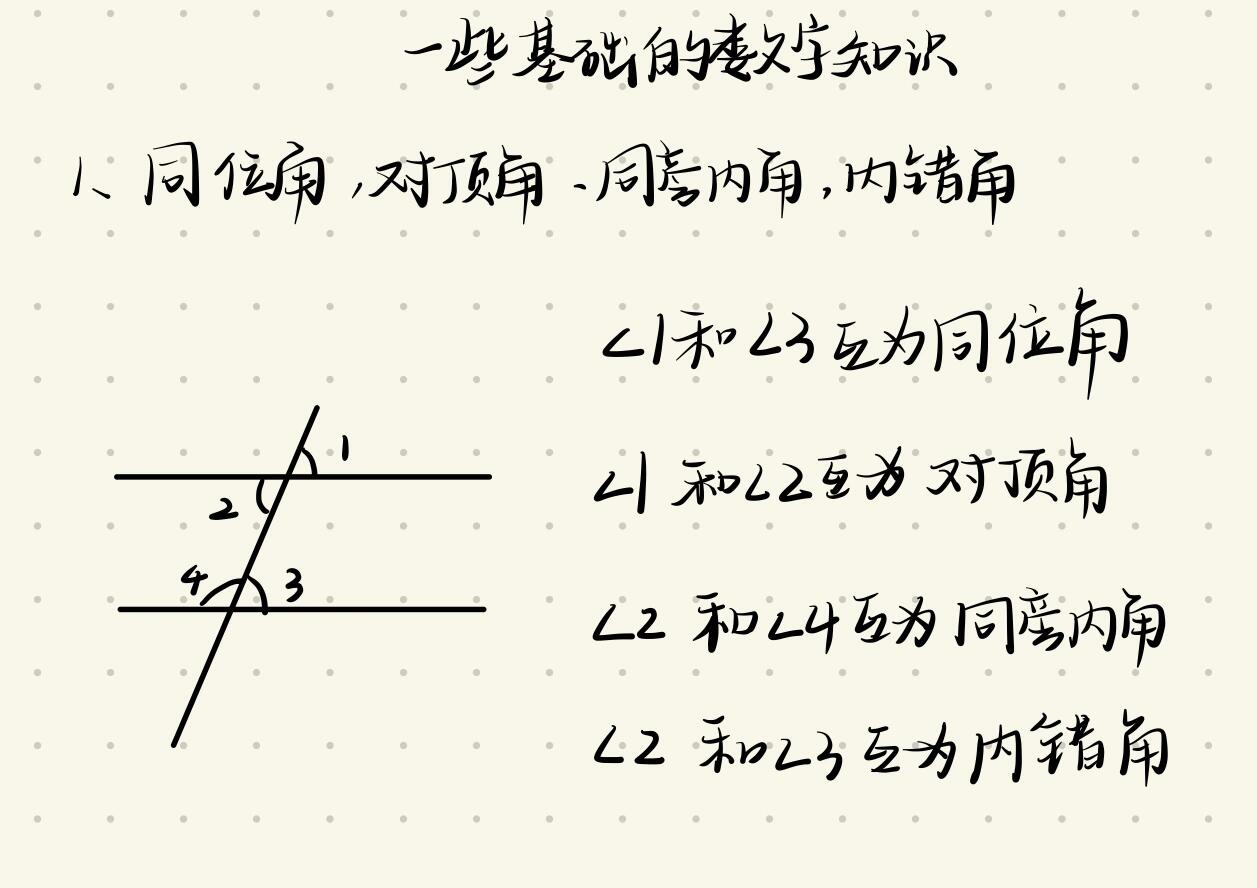 一些基础的数学知识
1、同位角,对顶角、同旁内角,内错角
∠1和∠3互为同位角
1
∠1和∠2互为对顶角
2
4 3
∠2和∠4互为同旁内角
∠2和∠3互为内错角